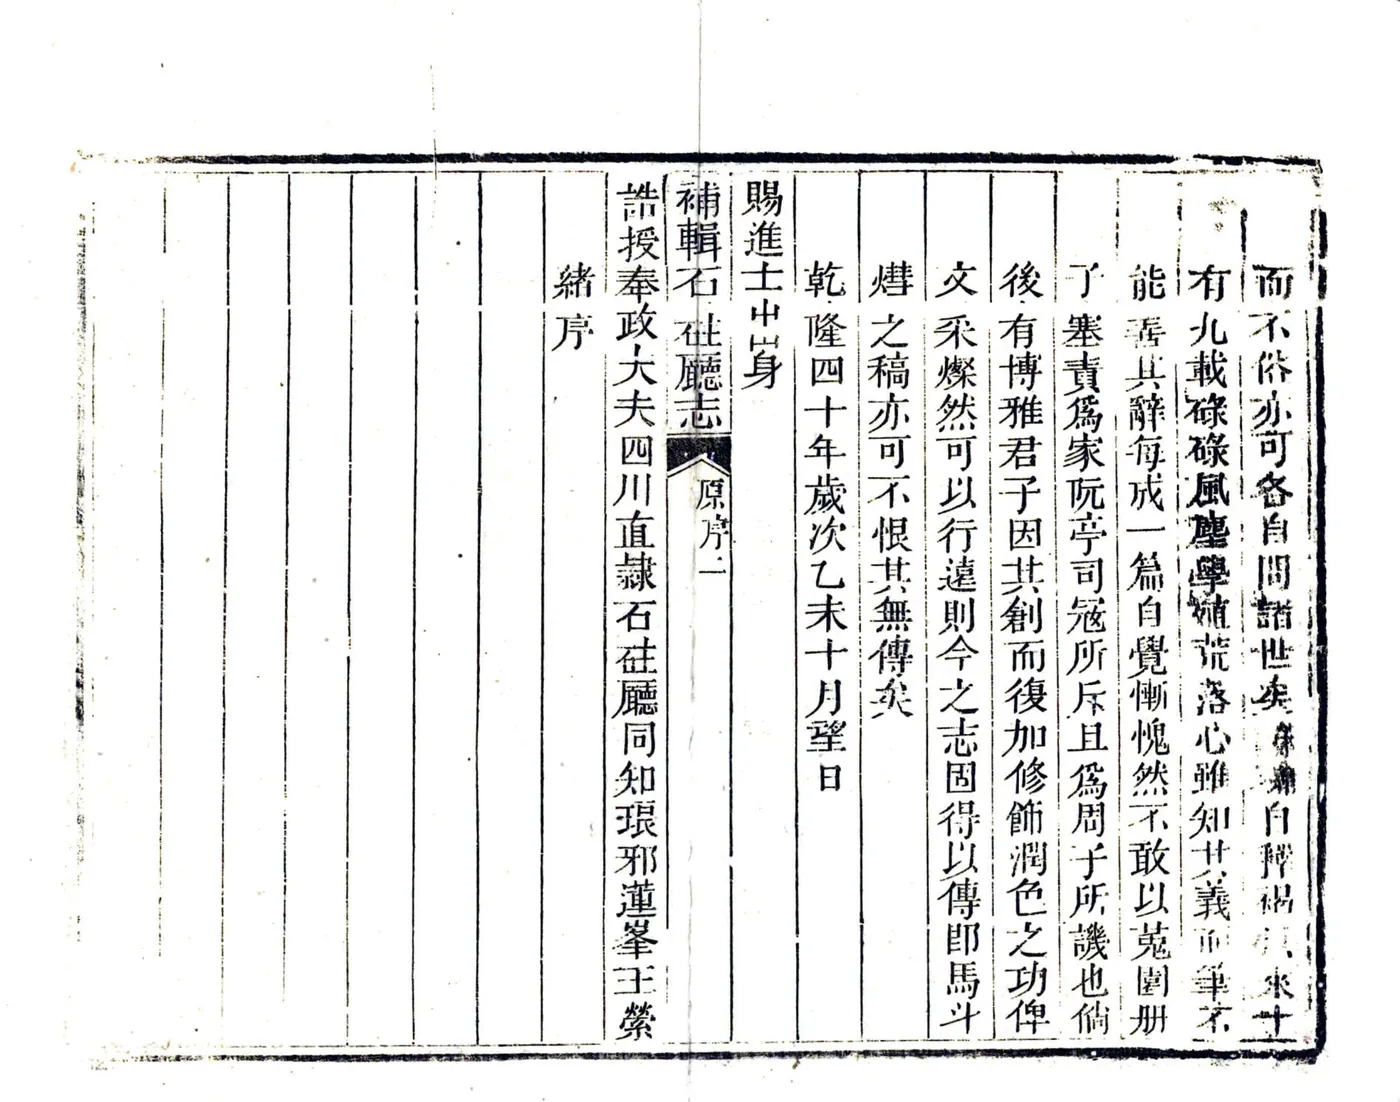 而不俗亦可各自問諸世矣 自釋褐 來十
有九載碌碌風塵學殖荒落心雖知其義而筆不
能善其辭每成一篇自覺慚愧然不敢以蒐園册
了塞責爲家阮亭司寇所斥且爲周子所譏也倘
後有博雅君子因其創而復加修飾潤色之功俾
文采燦然可以行遠則今之志固得以傳卽馬斗
㷫之稿亦可不恨其無傳矣
乾隆四十年歲次乙未十月望日
賜進士出身
補輯石砫廳志 原序 二
誥授奉政大夫四川直隸石砫廳同知琅邪蓮峯王縈
緒序